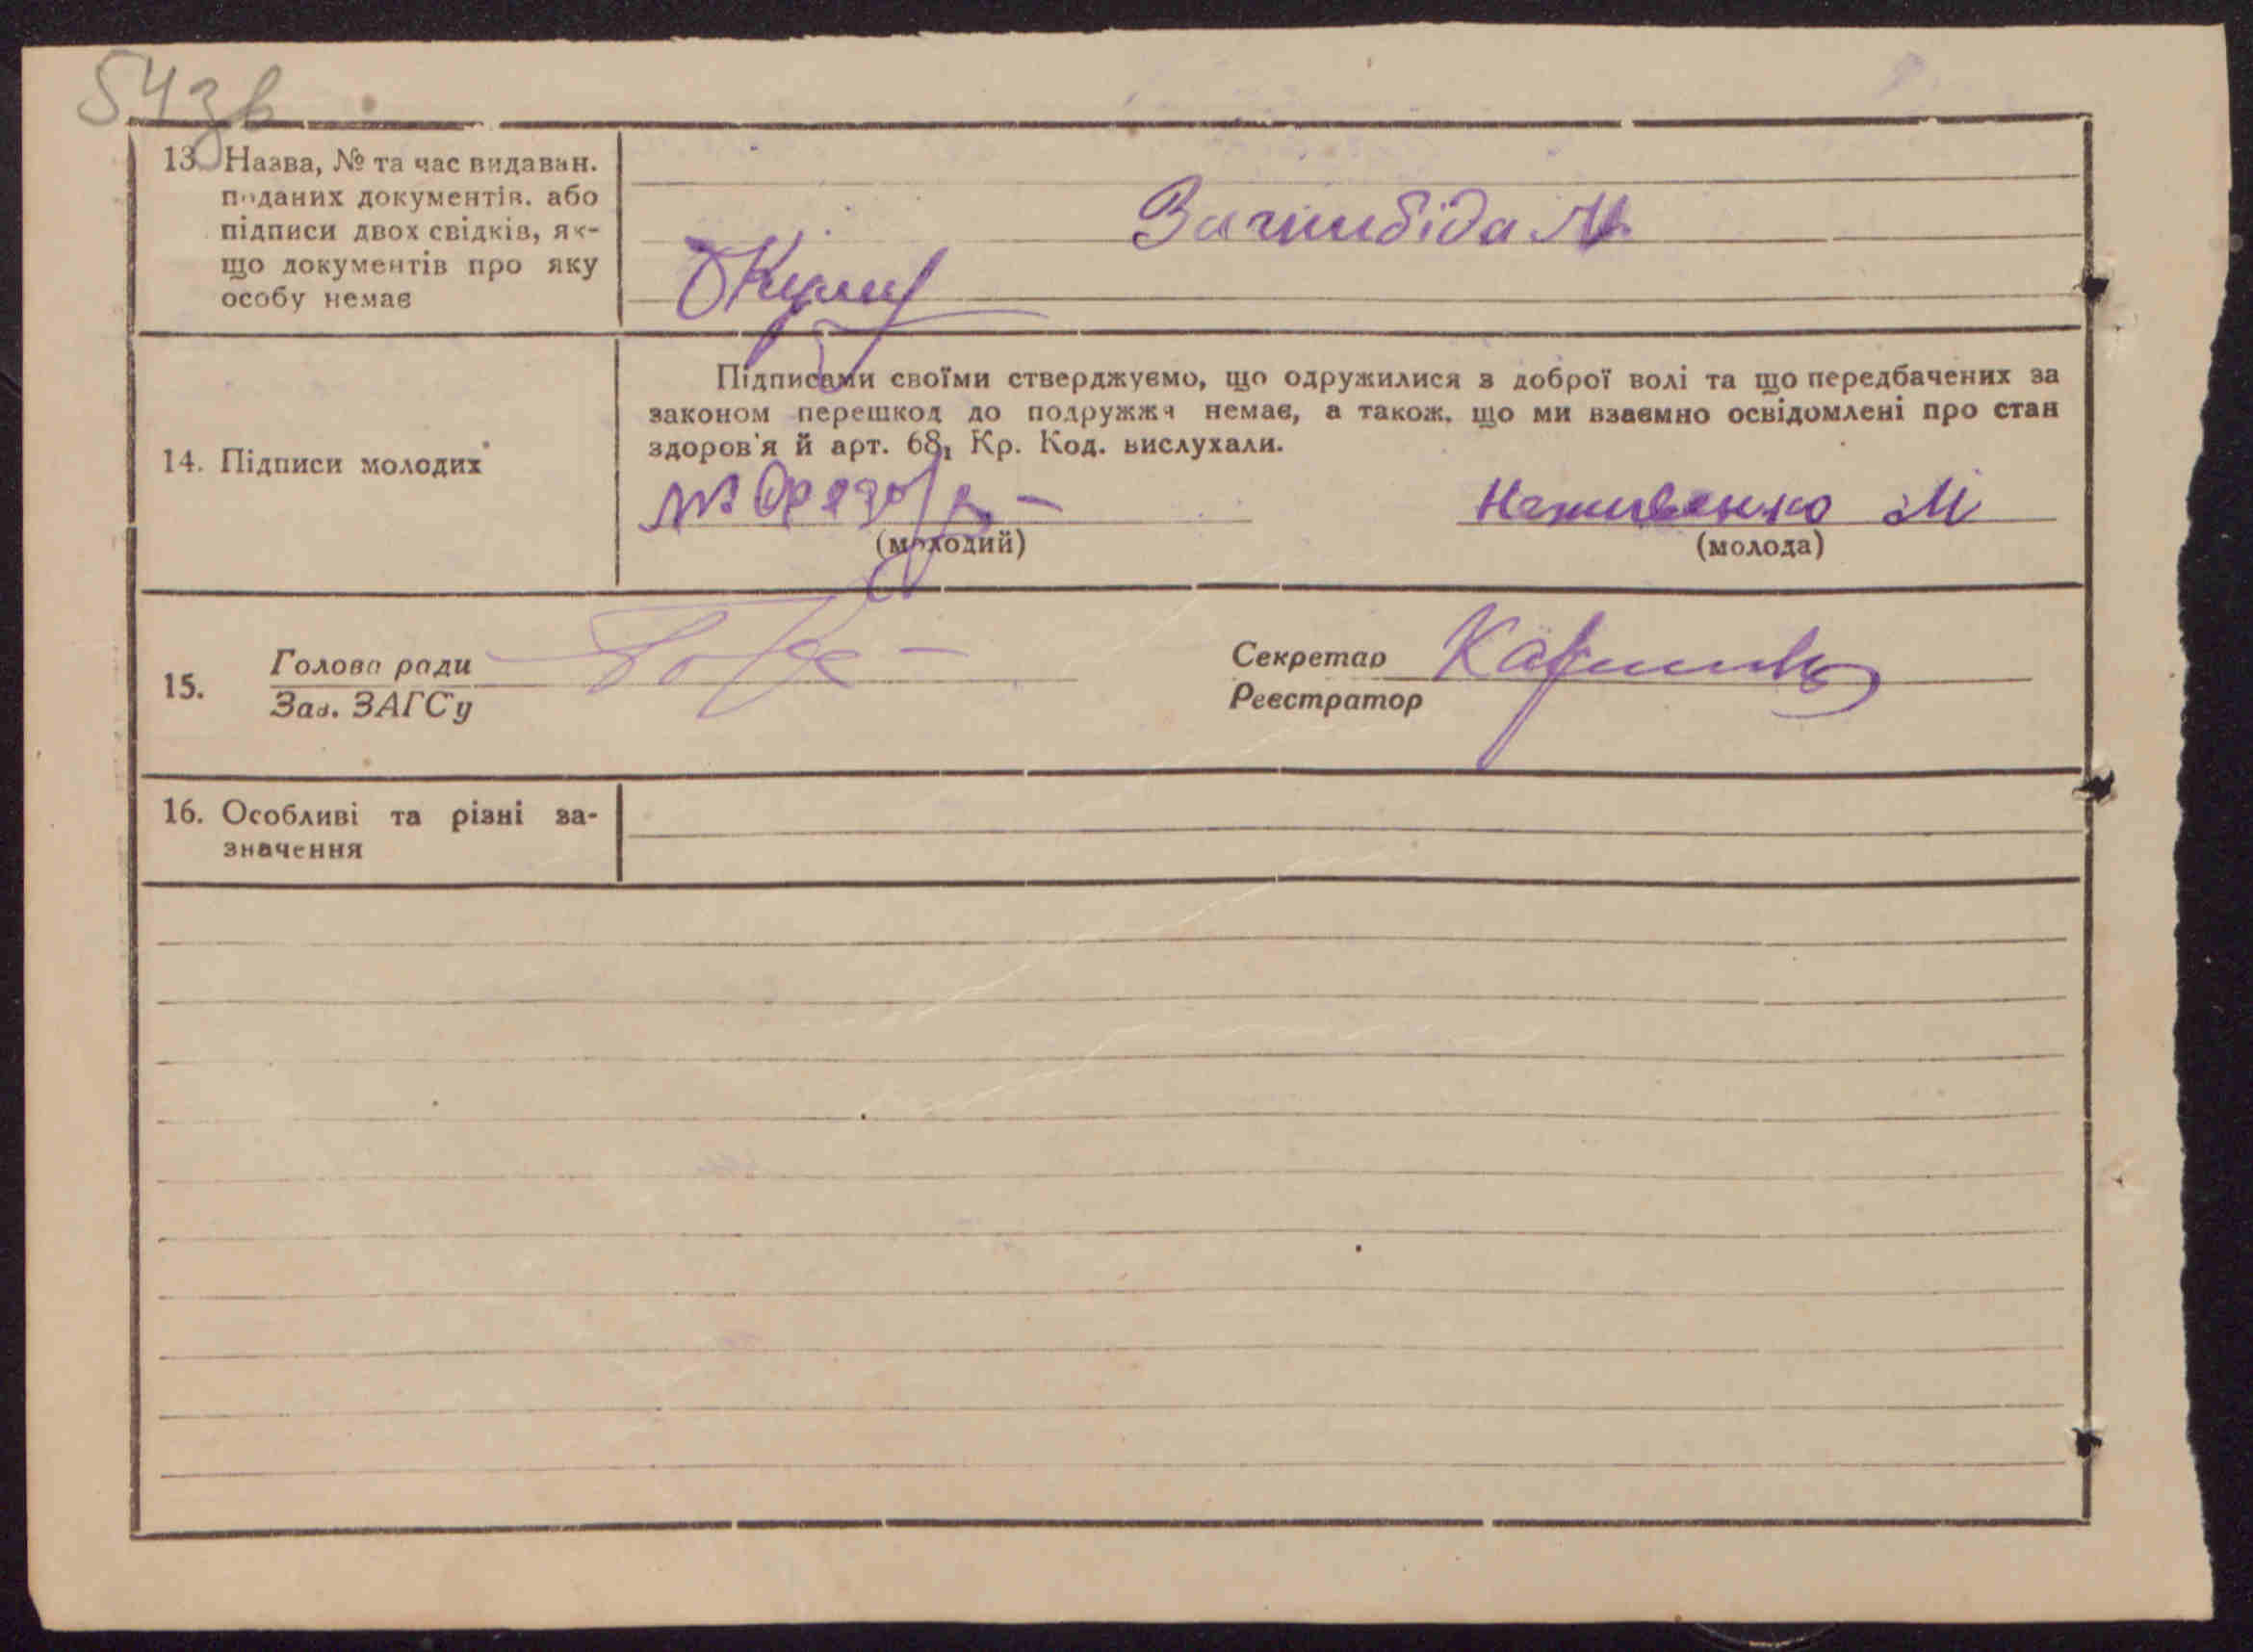 54зв
13. Назва, № та час видаван.
поданих документів. або
підписи двох свідків, як-
що документів про яку
особу немає
Загнибіда М.
14. Підписи молодих
Підписами своїми стверджуємо, що одружилися з доброї волі та що передбачених за
законом перешкод до подружжя немає, а також, що ми взаємно освідомлені про стан
здоров'я й арт. 68, Кр. Код. вислухали.
Наживенко М
(молодий) (молода)
15. Голова ради Секретар
Зав. ЗАГС'у Реєстратор
16. Особливі та різні за-
значення